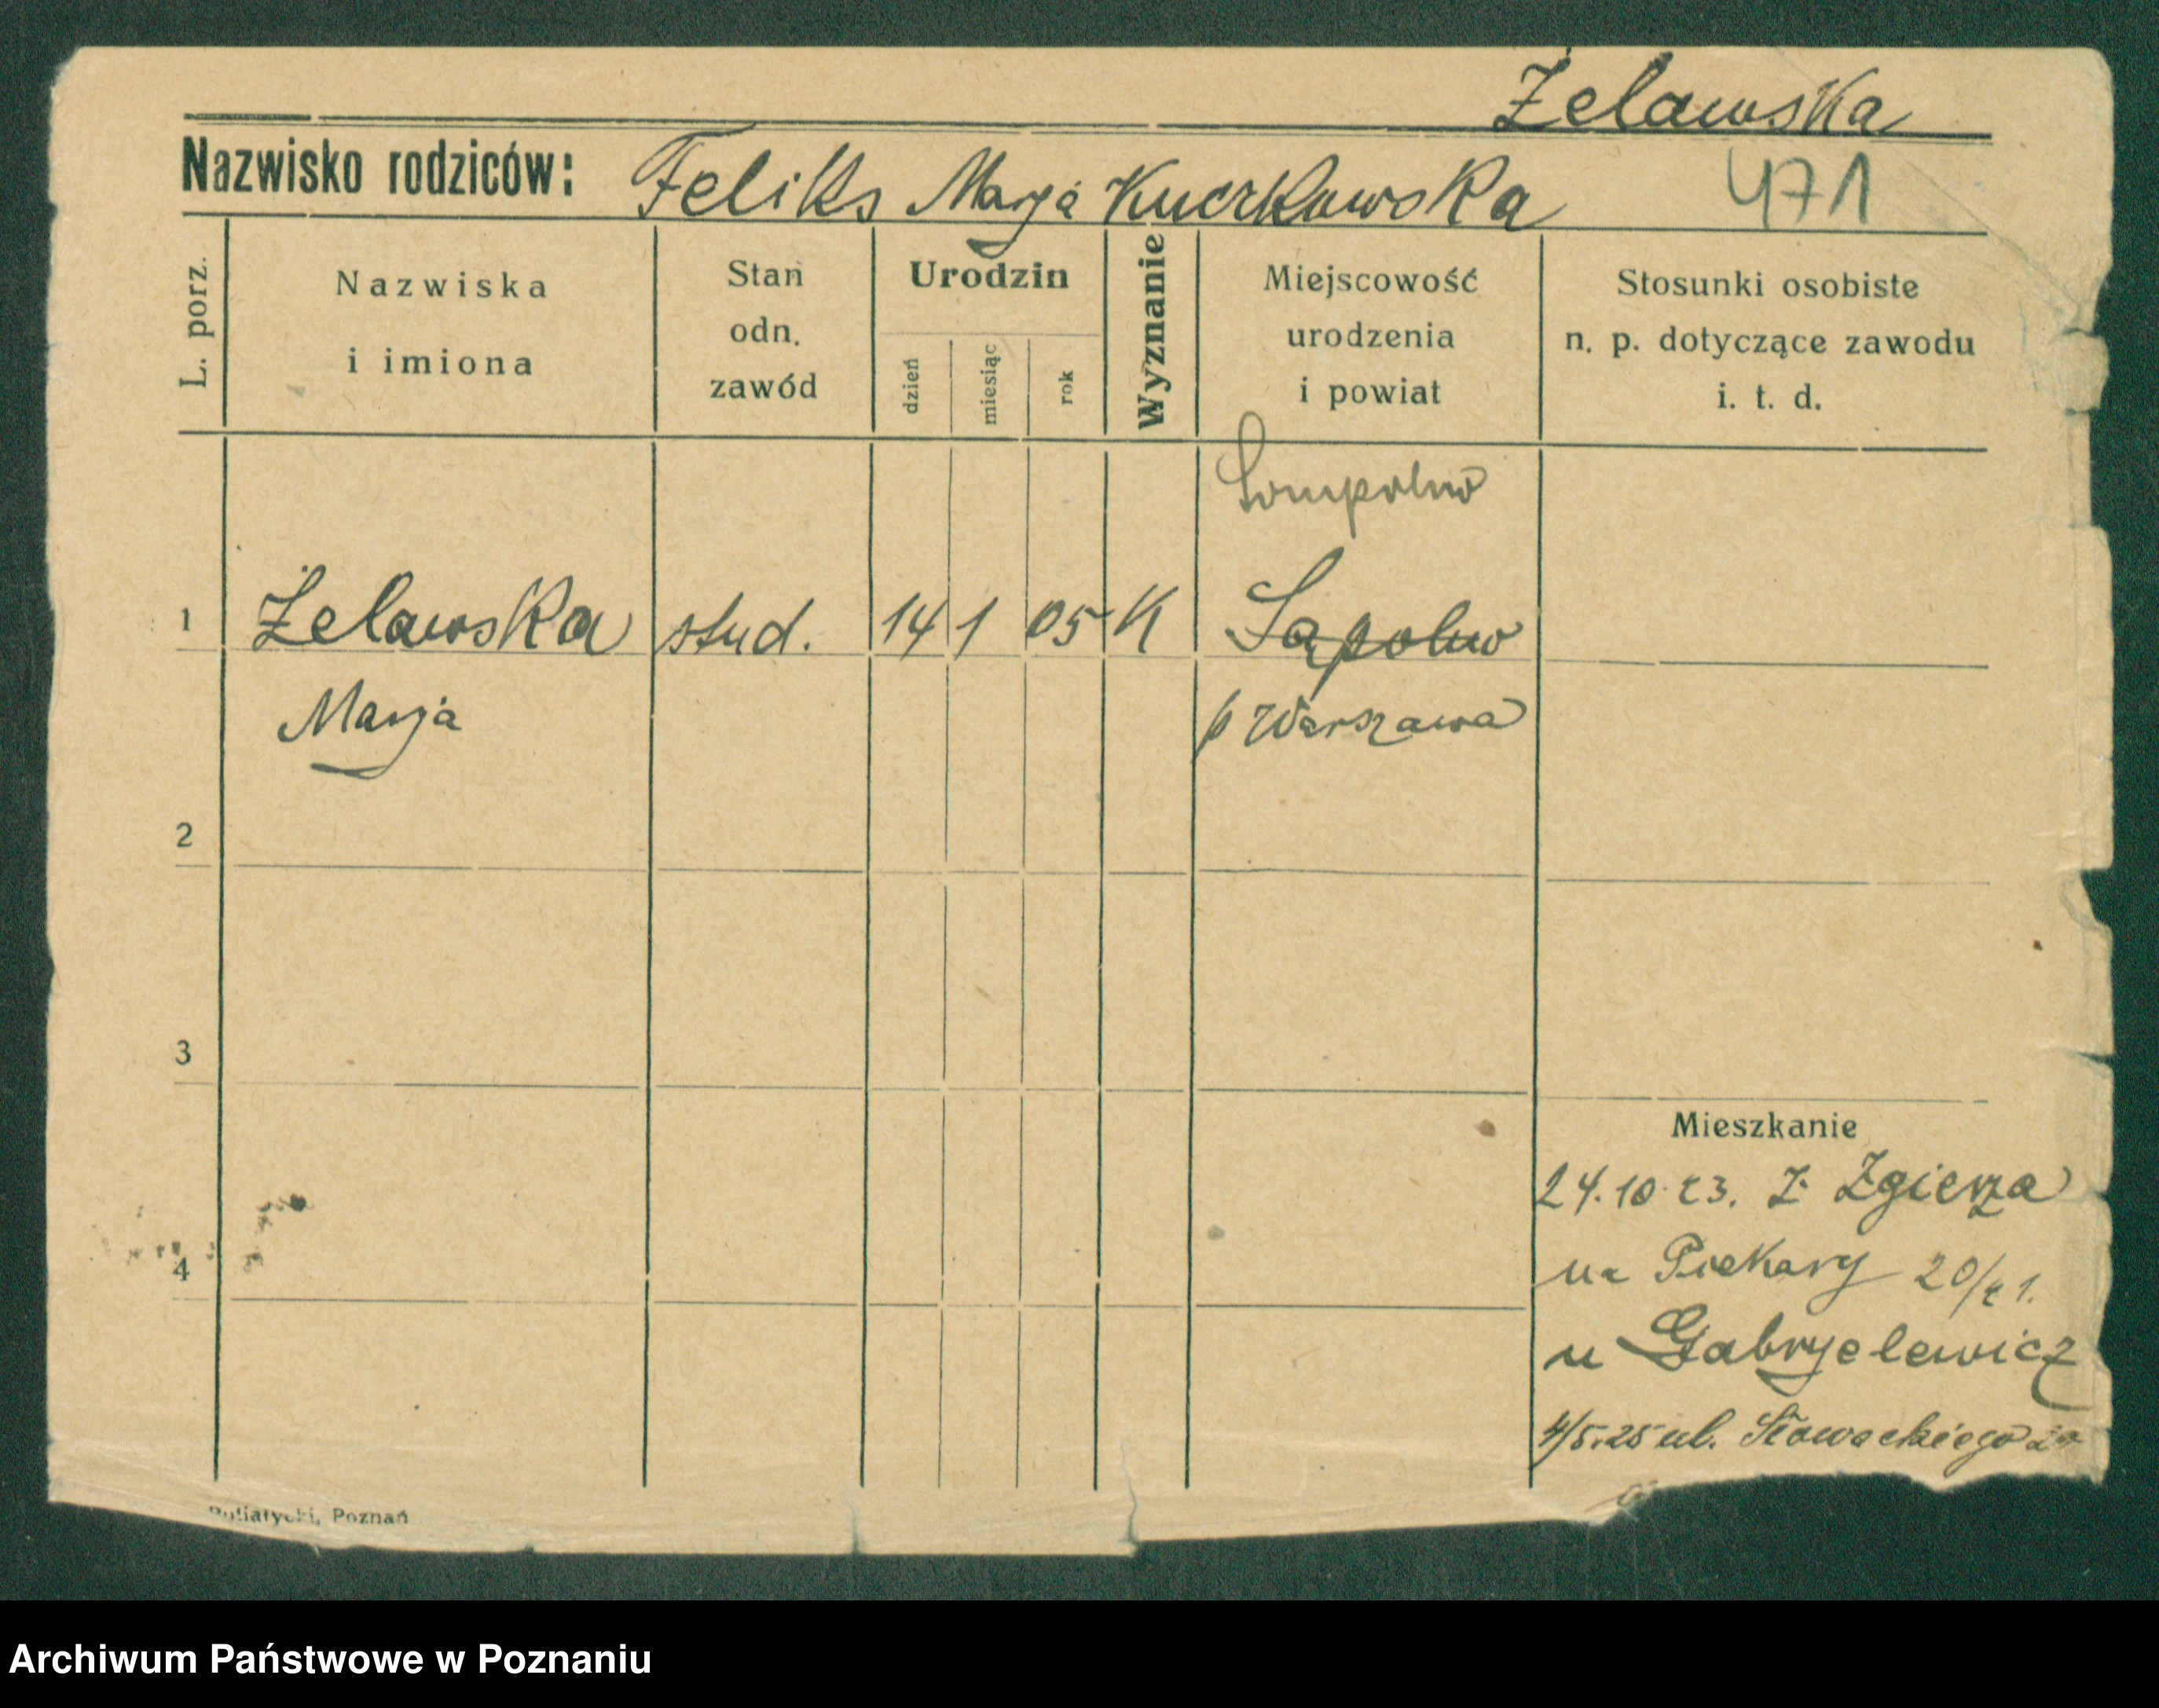 Żelawska
Nazwisko rodziców: Feliks Marja Kuczkowska 471
L. porz.
Nazwiska
i imiona
Stan
odn.
zawód
Urodzin
dzień
miesiąc
rok
Wyznanie
Miejscowość
urodzenia
i powiat
Stosunki osobiste
n. p. dotyczące zawodu
i. t. d.
Sompolno
1 Żelawska stud. 14 1 05 K Sąpolno
Marja p Warszawa
2
3
Mieszkanie
24.10.23. z Zgierza
4
na Piekary 20/21.
u Gabryelewicz
4/5.25 ul. Słowackiego
Poznań
Archiwum Państwowe w Poznaniu